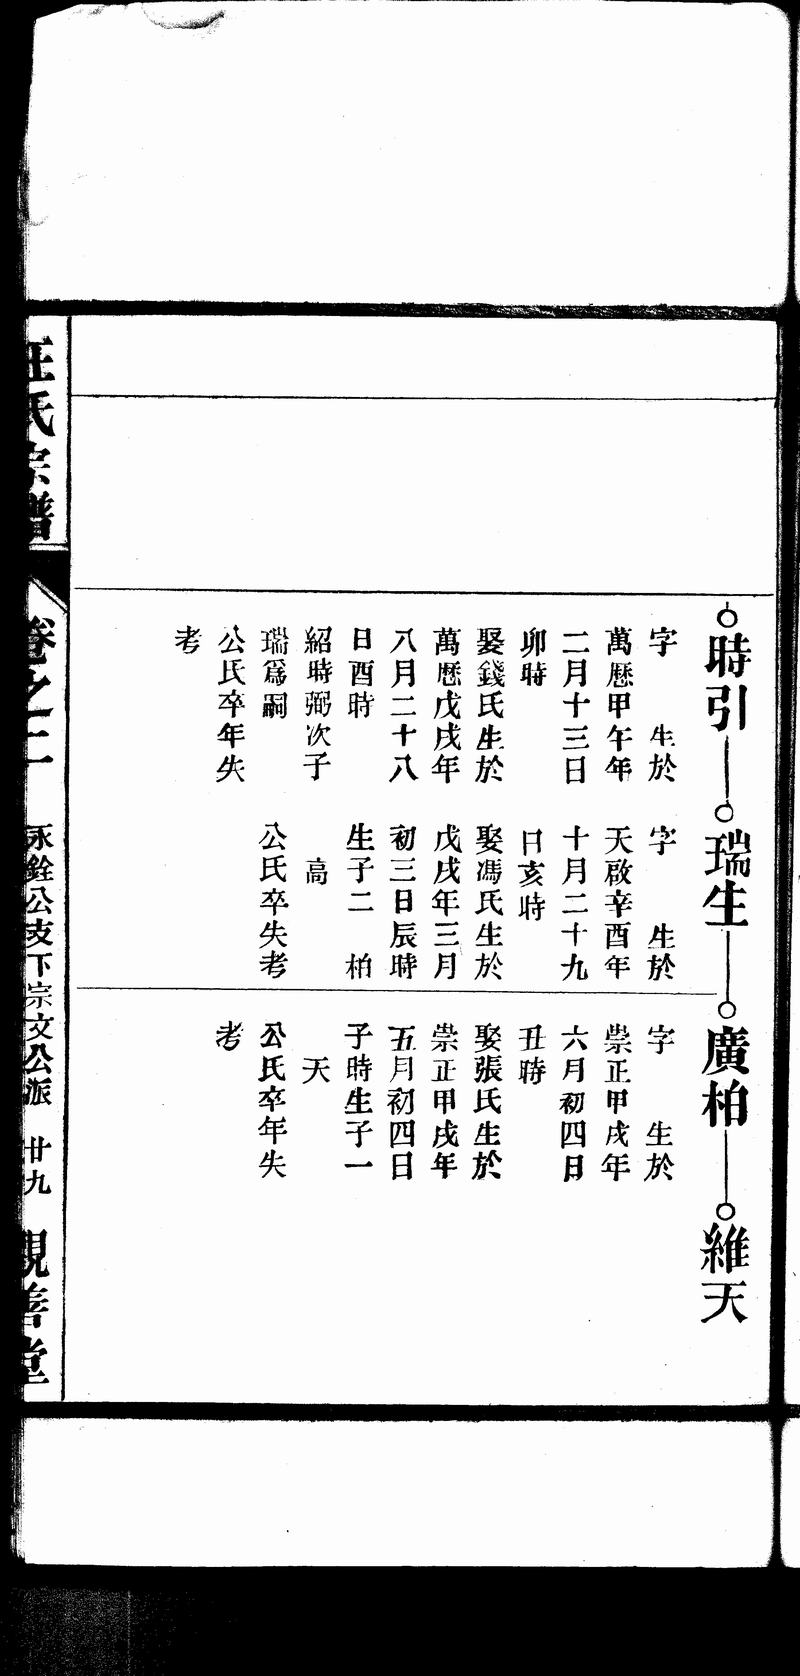 時引
字　生於
萬歷甲午年
二月十三日
卯時
娶錢氏生於
萬歷戊戌年
八月二十八
日酉時
紹時弼次子
瑞爲嗣
公氏卒年失
考
瑞生
字　生於
天啟辛酉年
十月二十九
日亥時
娶馮氏生於
戊戌年三月
初三日辰時
生子二　柏
高
公氏卒失考
廣柏
字　生於
崇正甲戌年
六月初四日
丑時
娶張氏生於
崇正甲戌年
五月初四日
子時生子一
天
公氏卒年失
考
維天
汪氏宗譜
卷之二
永銓公支下宗文公派
廿九
觀善堂